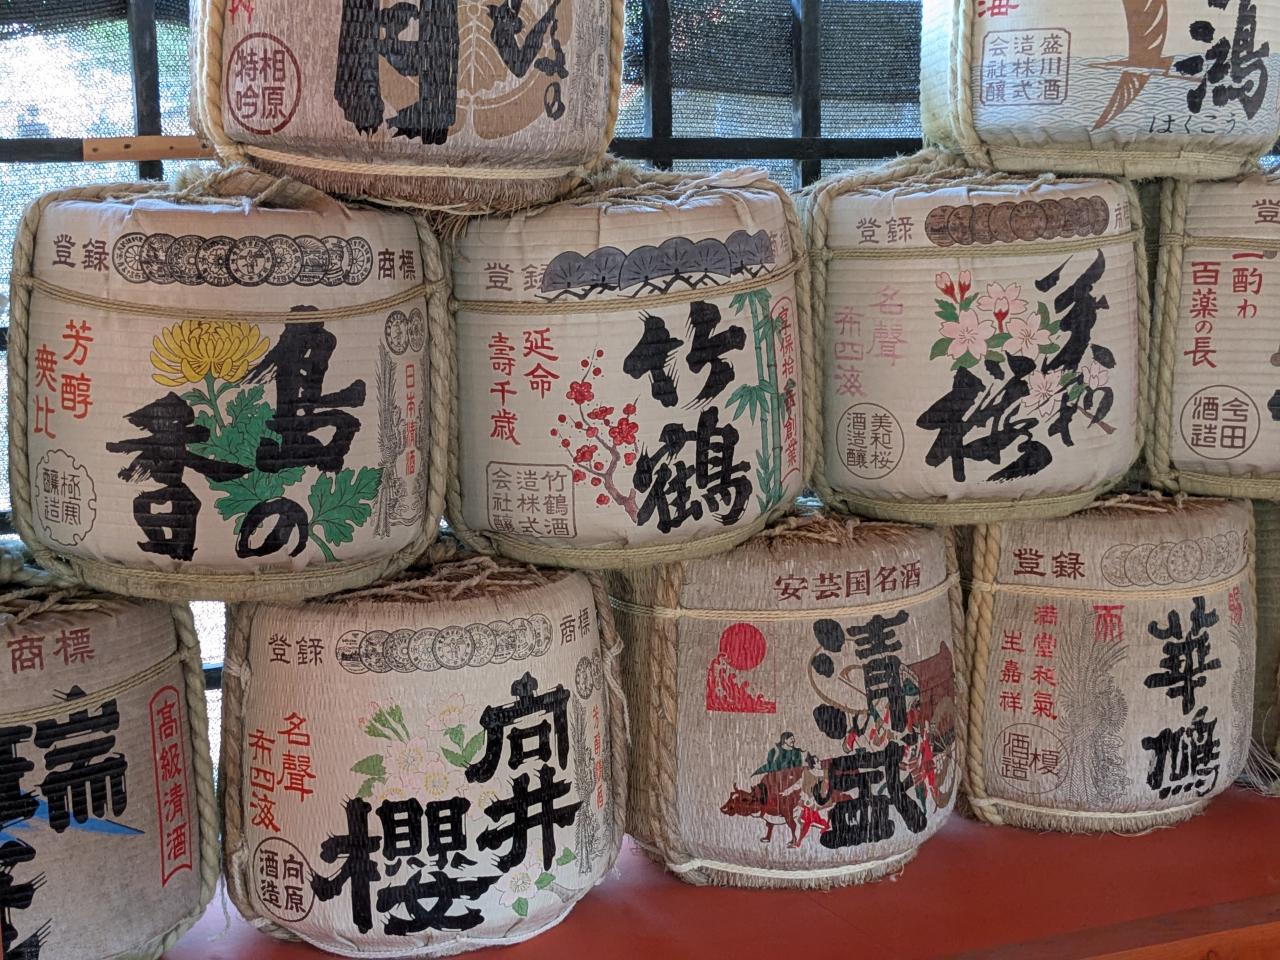 相原
特吟
月
盛川酒
造株式
会社醸
鴻
はくこう
登録
商標
芳醇
無比
島の
香
日本清酒
極原
醸造
登録
商標
延命
壽千歳
竹鶴
竹鶴酒
造株式
会社醸
登録
商標
名聲
布四海
美和
桜
美和桜
酒造醸
登
一酌わ
百薬の長
今田
酒造
商標
瑞
高級清酒
登録
商標
名聲
布四海
向井
櫻
向原
酒造
安芸国名酒
清盛
登録
満堂和氣
生嘉祥
華鳩
榎
酒造